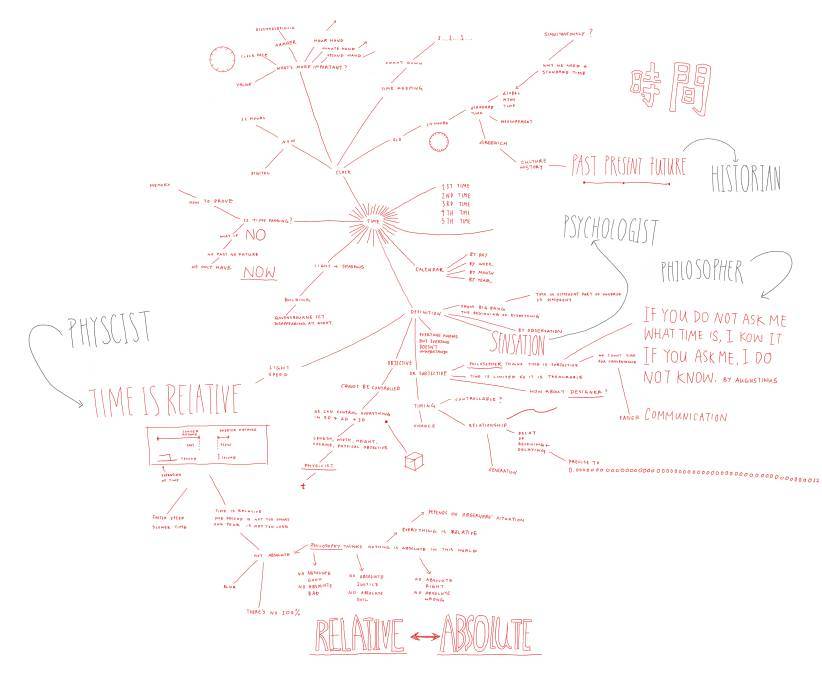 HOUR HAND
HAMMER
MINUTE HAND
SECOND HAND
CLOCK FACE
WHAT'S MORE IMPORTANT?
VALUE
3...2...1...
COUNT DOWN
TIME KEEPING
SIMULTANEOUSLY ?
WHY WE NEED A
STANDARD TIME
GLOBAL
TIME
STANDARD
TIME
MEASUREMENT
時間
12 HOURS
24 HOURS
OLD
NOW
DIGITAL
CLOCK
GREENWICH
CULTURE
HISTORY
PAST PRESENT FUTURE
HISTORIAN
MEMORY
HOW TO PROVE
IS TIME PASSING?
WHAT IF NO
NO PAST NO FUTURE
WE ONLY HAVE NOW
TIME
1ST TIME
2ND TIME
3RD TIME
4TH TIME
5TH TIME
PSYCHOLOGIST
PHILOSOPHER
LIGHT & SHADOWS
BUILDING
DISAPPEARING AT NIGHT
CALENDAR
BY DAY
BY WEEK
BY MONTH
BY YEAR
TIME IN DIFFERENT PART OF UNIVERSE
IS DIFFERENT
FROM BIG BANG
THE BEGINNING OF EVERYTHING
DEFINITION
BY OBSERVATION
SENSATION
PHYSCIST
TIME IS RELATIVE
LIGHT
SPEED
OBJECTIVE
OR SUBJECTIVE
PHILOSOPHER THINKS TIME IS SUBJECTIVE
WE COUNT TIME
FOR CONVENIENCE
TIME IS LIMITED SO IT IS TREASURABLE
HOW ABOUT DESIGNER?
IF YOU DO NOT ASK ME
WHAT TIME IS, I KOW IT
IF YOU ASK ME, I DO
NOT KNOW. BY AUGUSTINUS
COMMUNICATION
CANOT BE CONTROLLED
WE CAN CONTROL EVERYTHING
IN 2D & 4D & 3D
LENGTH, WIDTH, HEIGHT,
VOLUME, PHYSICAL OBJECTIVE
PHYSICIST
t
TIMING
CONTROLLABLE?
CHANCE
RELATIONSHIP
DECAY
OR
DECAYING
GENERATION
PRECISE TO
LONGER DISTANCE
SHORTER DISTANCE
1 SECOND
1 SECOND
EXPANSION
OF TIME
FASTER SPEED
SLOWER TIME
TIME IS RELATIVE
ONE SECOND IS NOT TOO SHORT
ONE YEAR IS NOT TOO LONG
NOT ABSOLUTE
BLUR
THERE'S NO 100%
PHILOSOPHY THINKS NOTHING IS ABSOLUTE IN THIS WORLD
EVERYTHING IS RELATIVE
DEPENDS ON OBSERVERS' SITUATION
NO ABSOLUTE
GOOD
NO ABSOLUTE
BAD
NO ABSOLUTE
JUSTICE
NO ABSOLUTE
EVIL
NO ABSOLUTE
RIGHT
NO ABSOLUTE
WRONG
RELATIVE ABSOLUTE